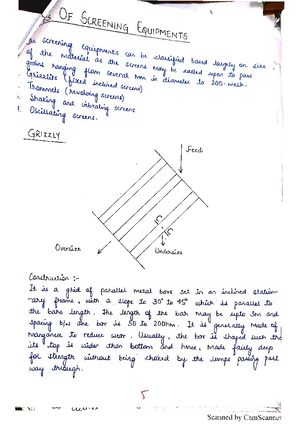 OF SCREENING EQUIPMENTS
screening equipments can be classified based largely on size
of the material as the screens may be called upon to pass
grains ranging from several mm in diameter to 200-mesh.
Grizzlies (fixed inclined screens)
Trommels (Revolving screens)
Shaking and vibrating screens
Oscillating screens.
GRIZZLY
Feed
Oversize
Undersize
Construction :-
It is a grid of parallel metal bars set in an inclined station-
-ary frame, with a slope to 30° to 45° which is parallel to
the bars length. The length of the bar may be upto 3m and
spacing b/w the bar is 50 to 200mm. It is generally made of
manganese to reduce wear. Usually, the bar is shaped such tha
its top is wider than bottom and hence, made fairly deep
for strength without being choked by the lumps passing part
way through.
5
Scanned by CamScanner